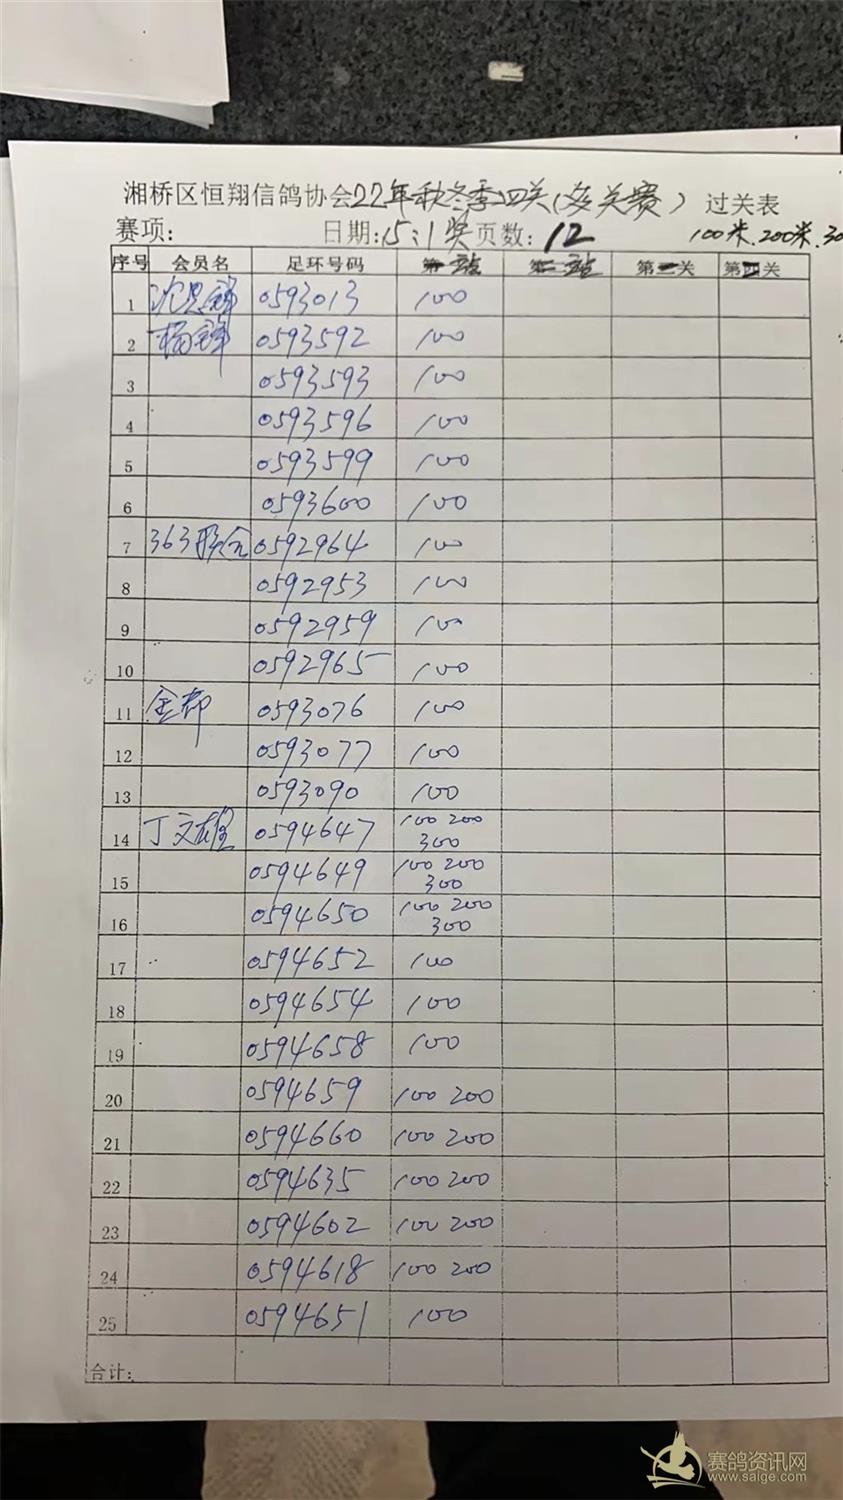 湘桥区恒翔信鸽协会22年秋冬季四关(多关赛) 过关表
赛项: 日期:15:1奖 页数:12 100米.200米.30
序号 会员名 足环号码 第一站 第二站 第三关 第四关
1 0593013 100
2 杨锋 0593592 100
3 0593593 100
4 0593596 100
5 0593599 100
6 0593600 100
7 363 0592964 100
8 0592953 100
9 0592959 100
10 0592965 100
11 金都 0593076 100
12 0593077 100
13 0593090 100
14 丁文雄 0594647 100 200
300
15 0594649 100 200
300
16 0594650 100 200
300
17 0594652 100
18 0594654 100
19 0594658 100
20 0594659 100 200
21 0594660 100 200
22 0594635 100 200
23 0594602 100 200
24 0594618 100 200
25 0594651 100
合计:
赛鸽资讯网
www.saige.com